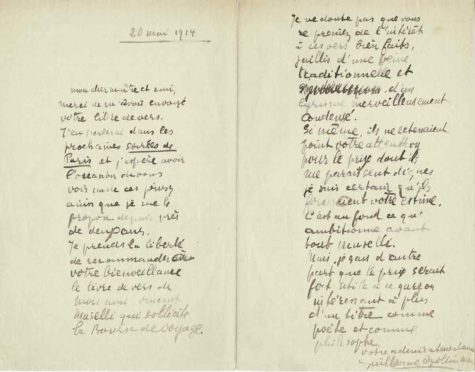 20 mai 1914
mon cher maître et ami,
merci de m'avoir envoyé
votre livre de vers.
J'en parlerai dans les
prochaines soirées de
Paris et j'espère avoir
l'occasion de vous
voir un de ces jours
ainsi que je me le
propose depuis près
de deux ans.
Je prends la liberté
de recommander à
votre bienveillance
le livre de vers de
mon ami vincent
muselli qui sollicite
la Bourse de voyage.
Je ne doute pas que vous
ne preniez de l'intérêt
à ces vers bien faits,
jaillis d'une veine
traditionnelle et
d'un
lyrisme merveilleusement
condensé.
Si même, ils ne retenaient
point votre attention
pour le prix dont ils
me paraissent dignes
je suis certain qu'ils
auraient votre estime.
C'est au fond ce qu'
ambitionne avant
tout muselli.
Mais, d'autre
part que le prix serait
fort utile à ce garçon
intéressant à plus
d'un titre comme
poète et comme
philosophe.
votre admirateur
Guillaume Apollinaire